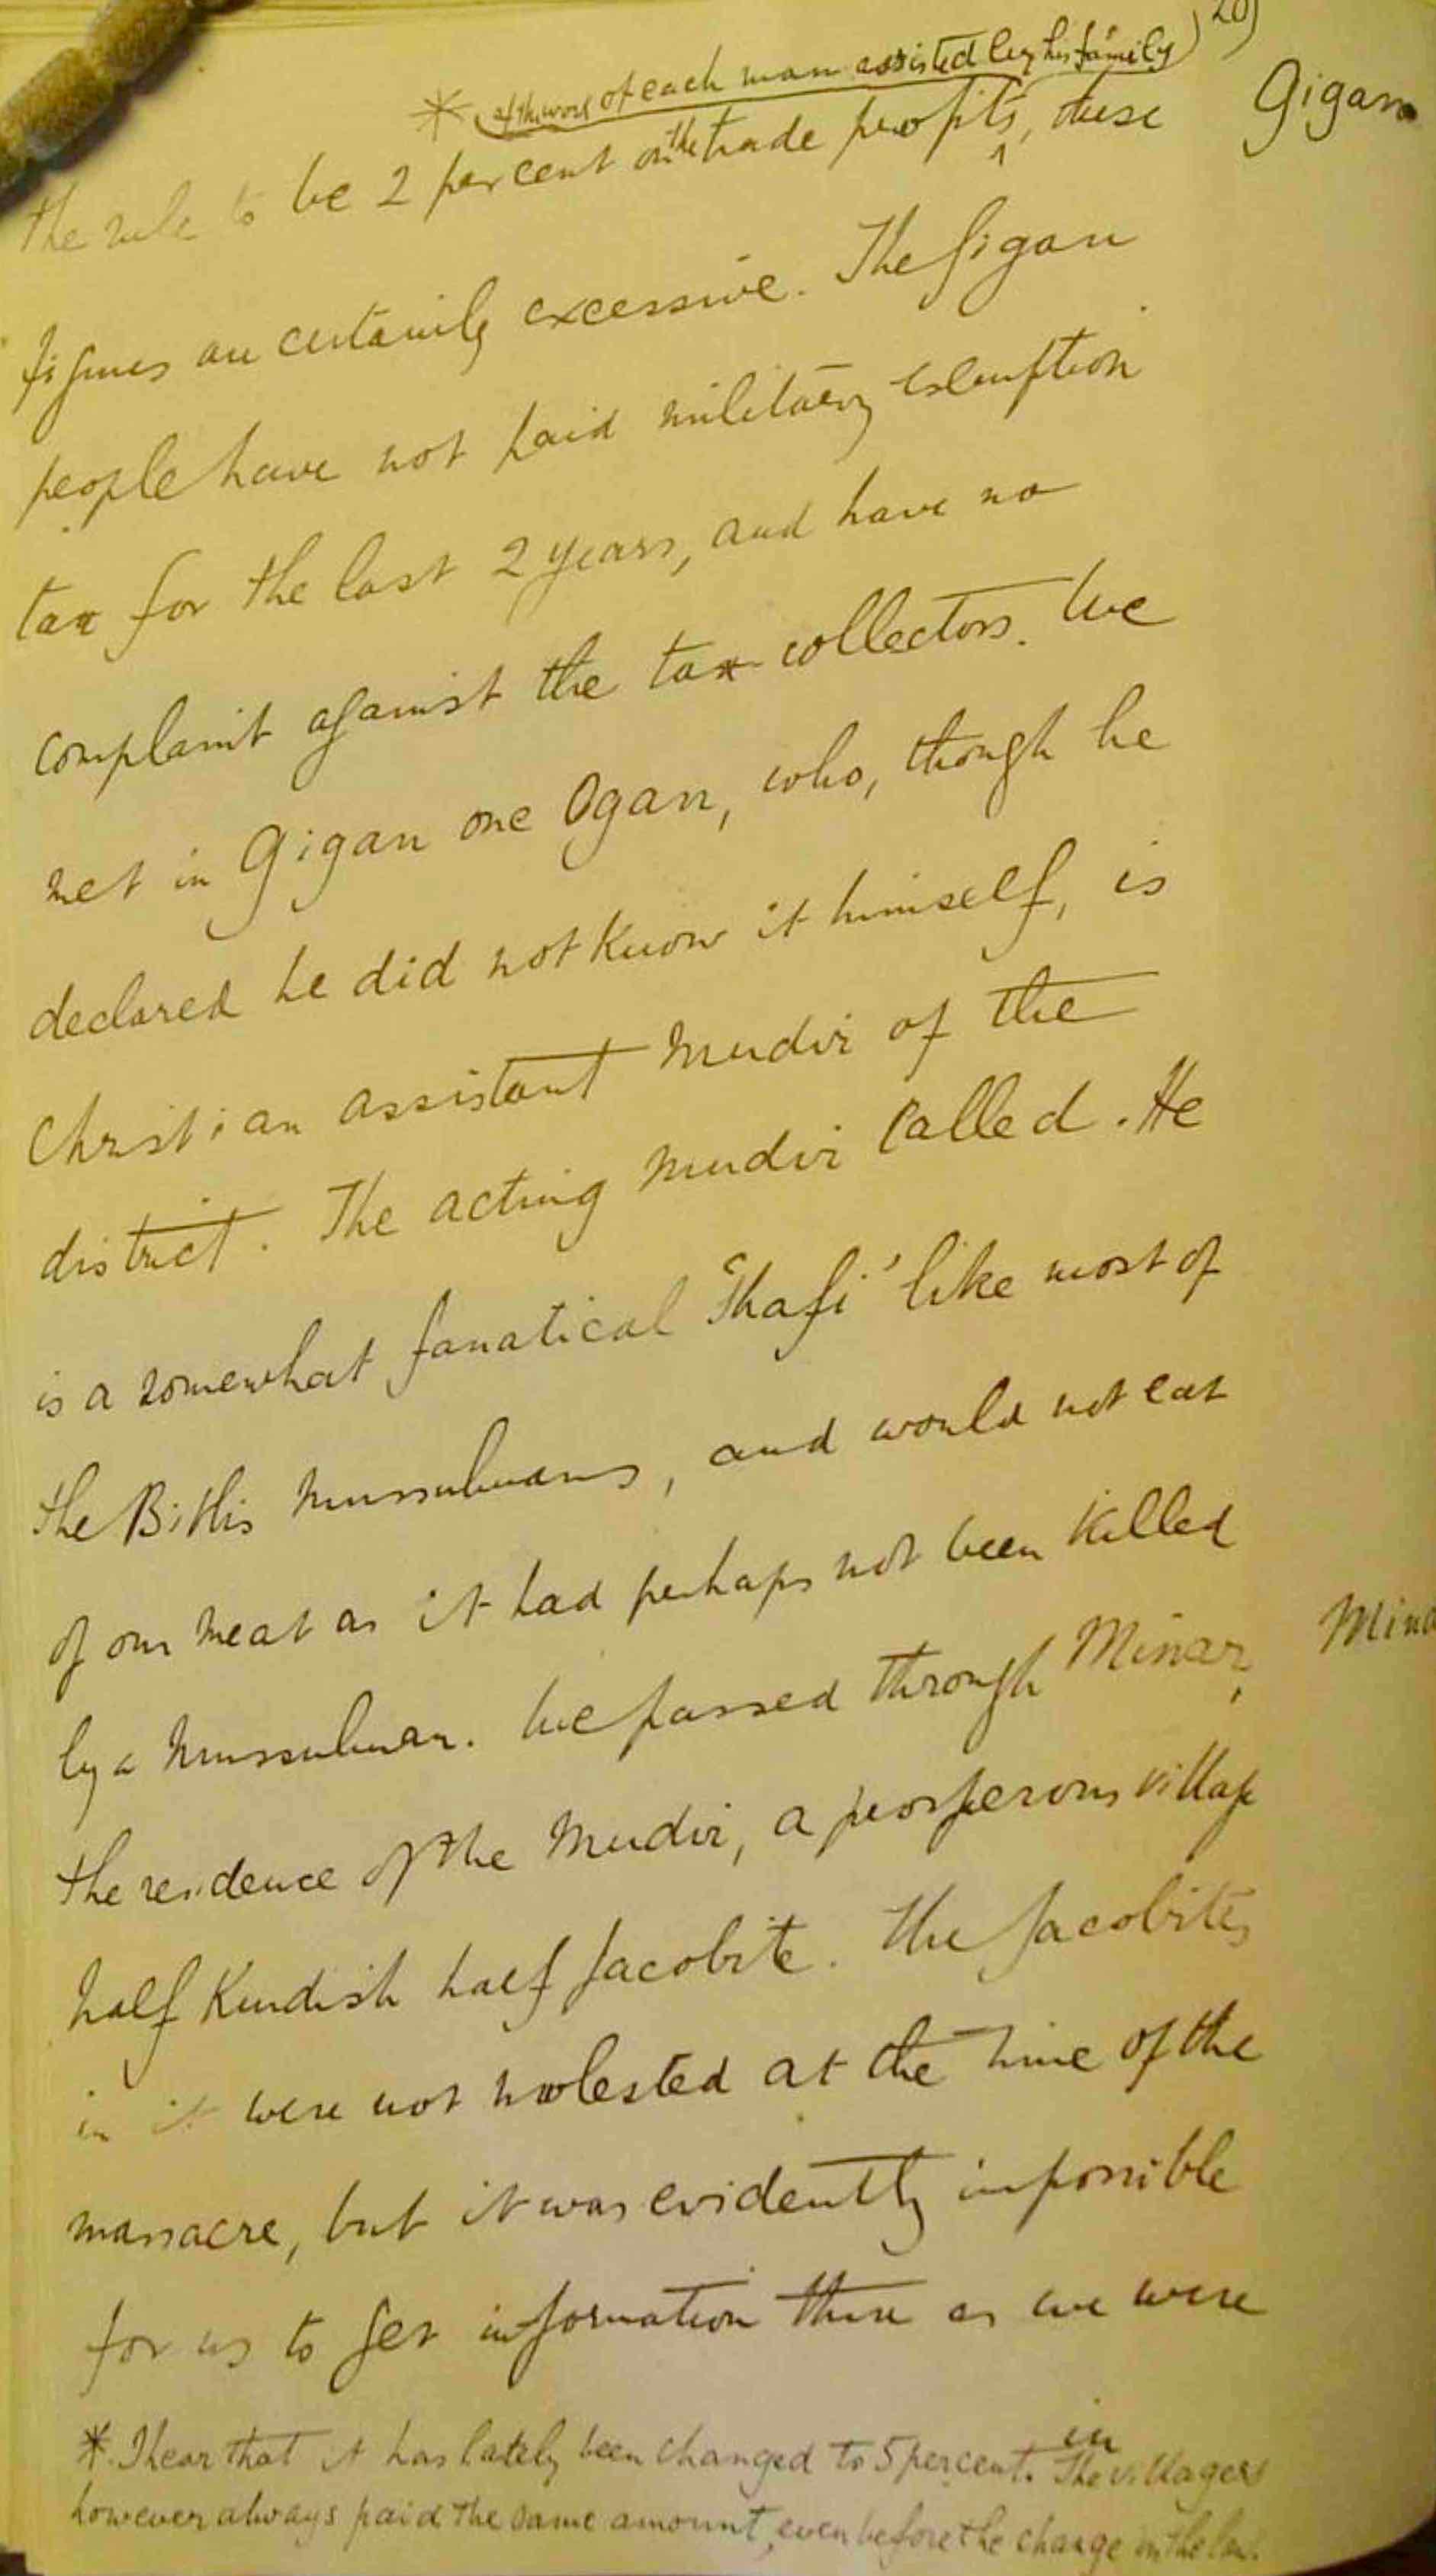 20)
* of the work of each man assisted by his family)
Gigan
the rule to be 2 per cent on the trade profits, these
figures are certainly excessive. The Gigan
people have not paid military exemption
tax for the last 2 years, and have no
complaint against the tax collectors. We
met in Gigan one Ogan, who, though he
declared he did not know it himself, is
Christian assistant Mudir of the
district. The acting Mudir called. He
is a somewhat fanatical Shafi' like most of
the Bitlis Mussulmans, and would not eat
of our meat as it had perhaps not been killed
by a Mussulman. We passed through Minar,
Mina
the residence of the Mudir, a prosperous village
half Kurdish half Jacobite. The Jacobites
in it were not molested at the time of the
massacre, but it was evidently impossible
for us to get information there as we were
* I hear that it has lately been changed to 5 per cent. The villagers
in
however always paid the same amount, even before the change in the law.